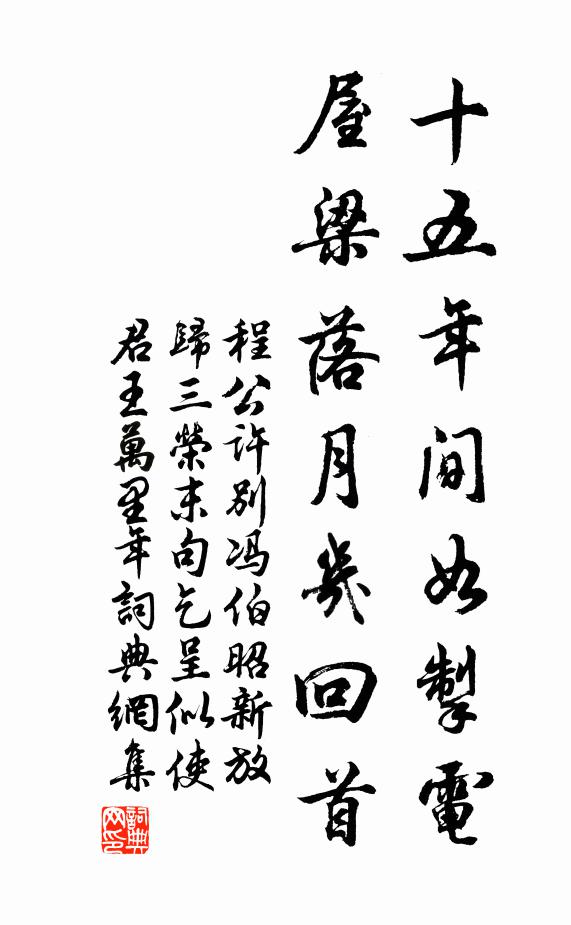 十五年間如掣電
屋梁落月幾回首
程公許別冯伯昭新放
歸三榮末句乞呈似使
君王萬里年詞典網集
詞典網印